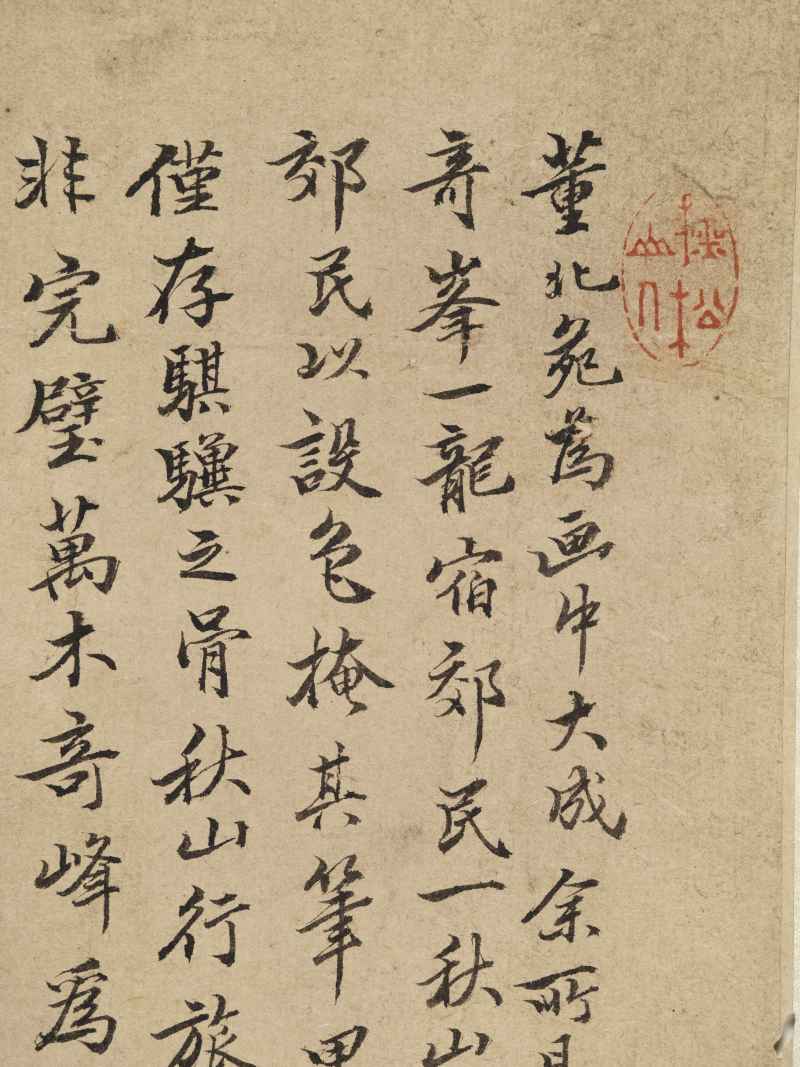 董北苑為画中大成余所見
奇峯一龍宿郊民一秋山
郊民以設色掩其筆墨
僅存騏驥之骨秋山行旅
非完璧萬木奇峰為